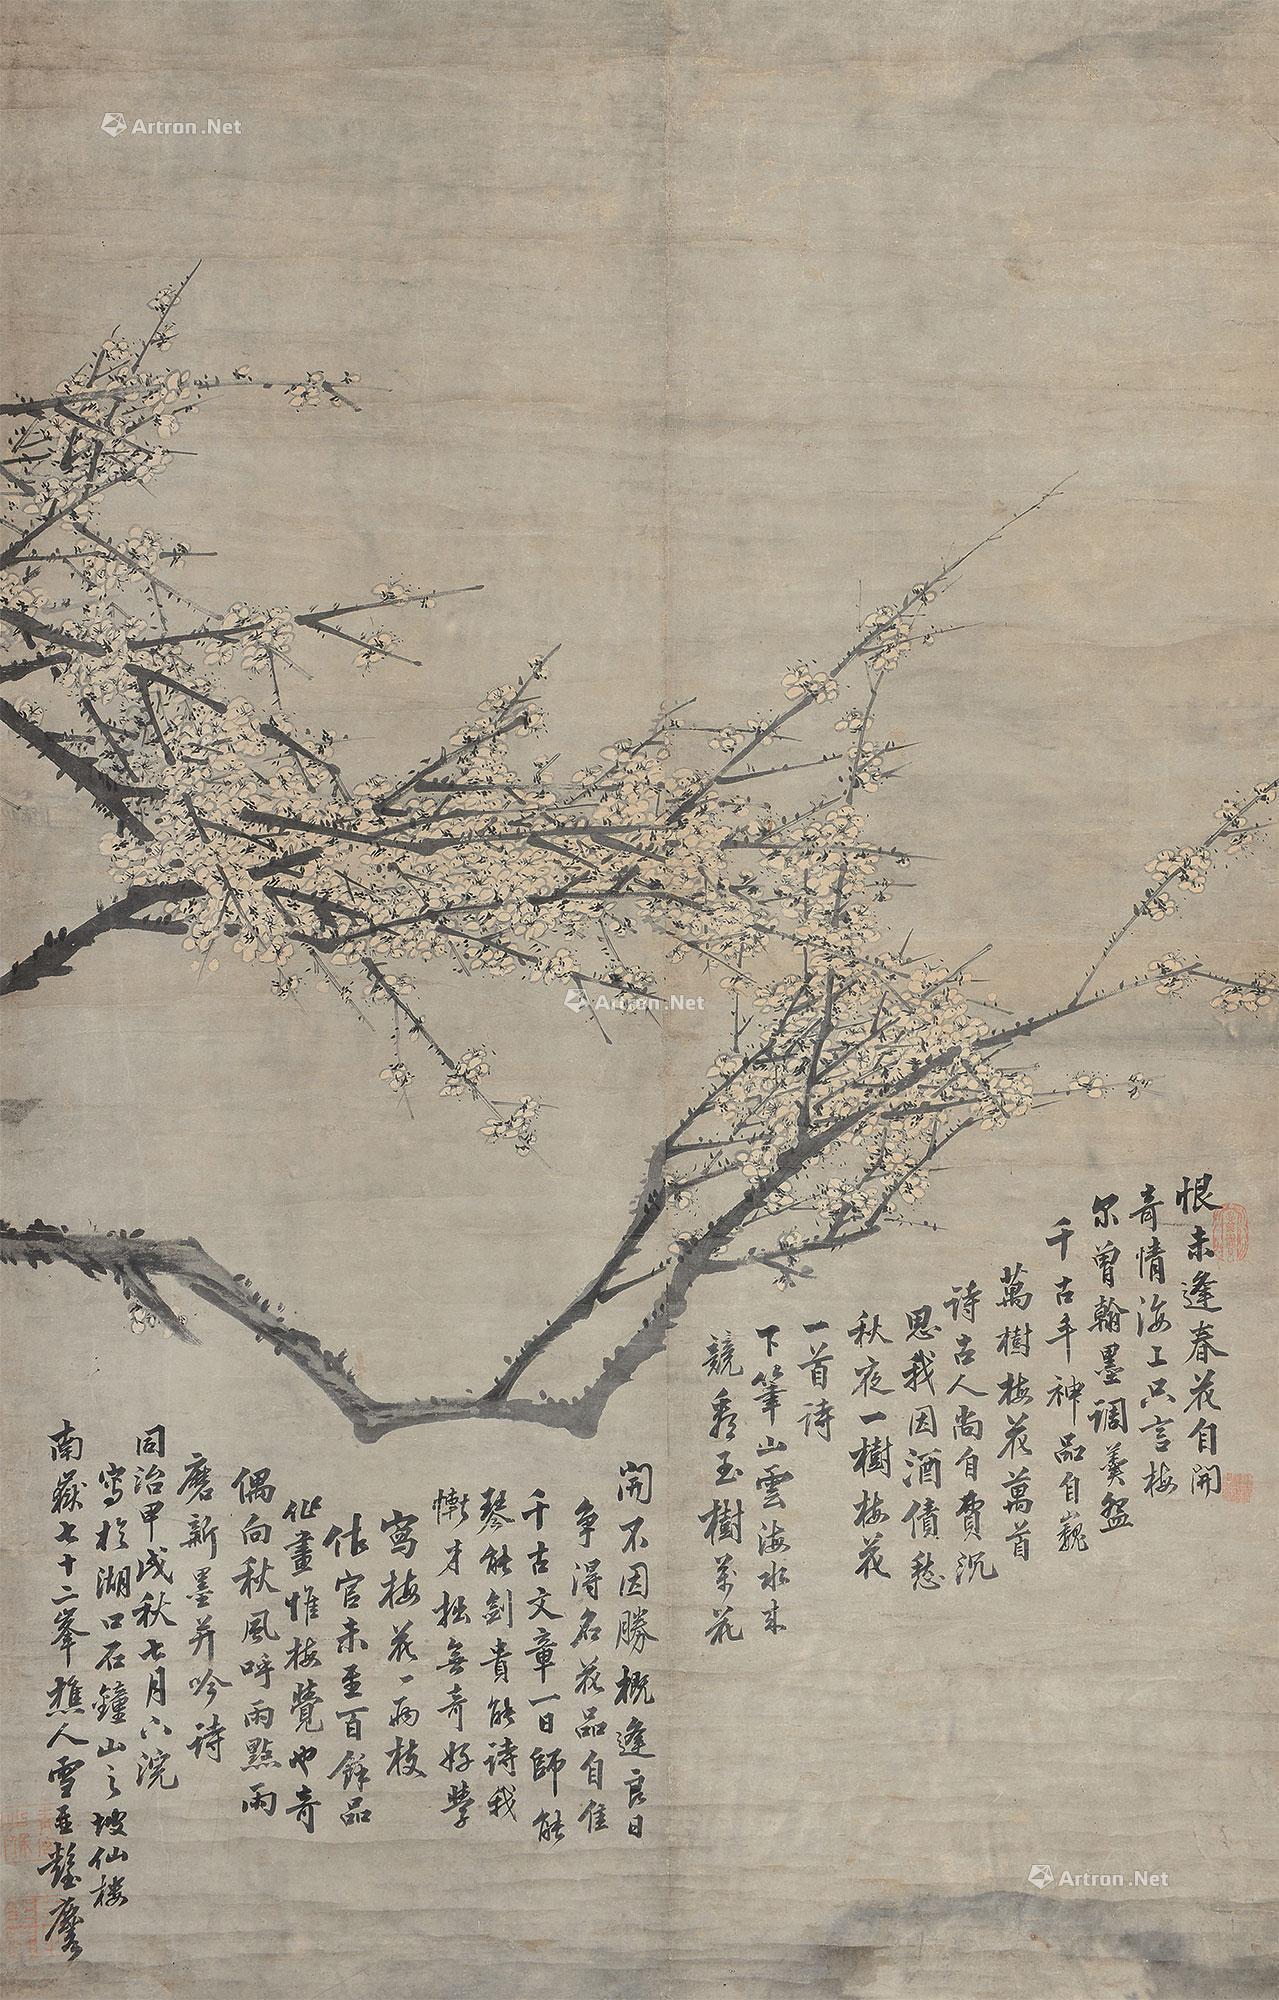 恨未逢春花自開
奇情海上只言梅
尔曾翰墨調羹盤
千古手神品自巍
萬樹梅花萬首
詩古人尚自費沉
思我因酒債愁
秋夜一樹梅花
一首詩
下筆山雲海水來
競秀玉樹萬花
開不因勝概逢良日
爭得名花品自佳
千古文章一日師能
琴能劍貴能詩我
慚才拙無奇好學
寫梅花一兩枝
作官未至百餘品
作畫惟梅覺也奇
偶向秋風呼雨點雨
磨新墨並吟詩
同治甲戌秋七月下浣
寫於湖口石鐘山之坡仙樓
南嶽七十二峯樵人雪
Artron.Net
Artron.Net
Artron.Net